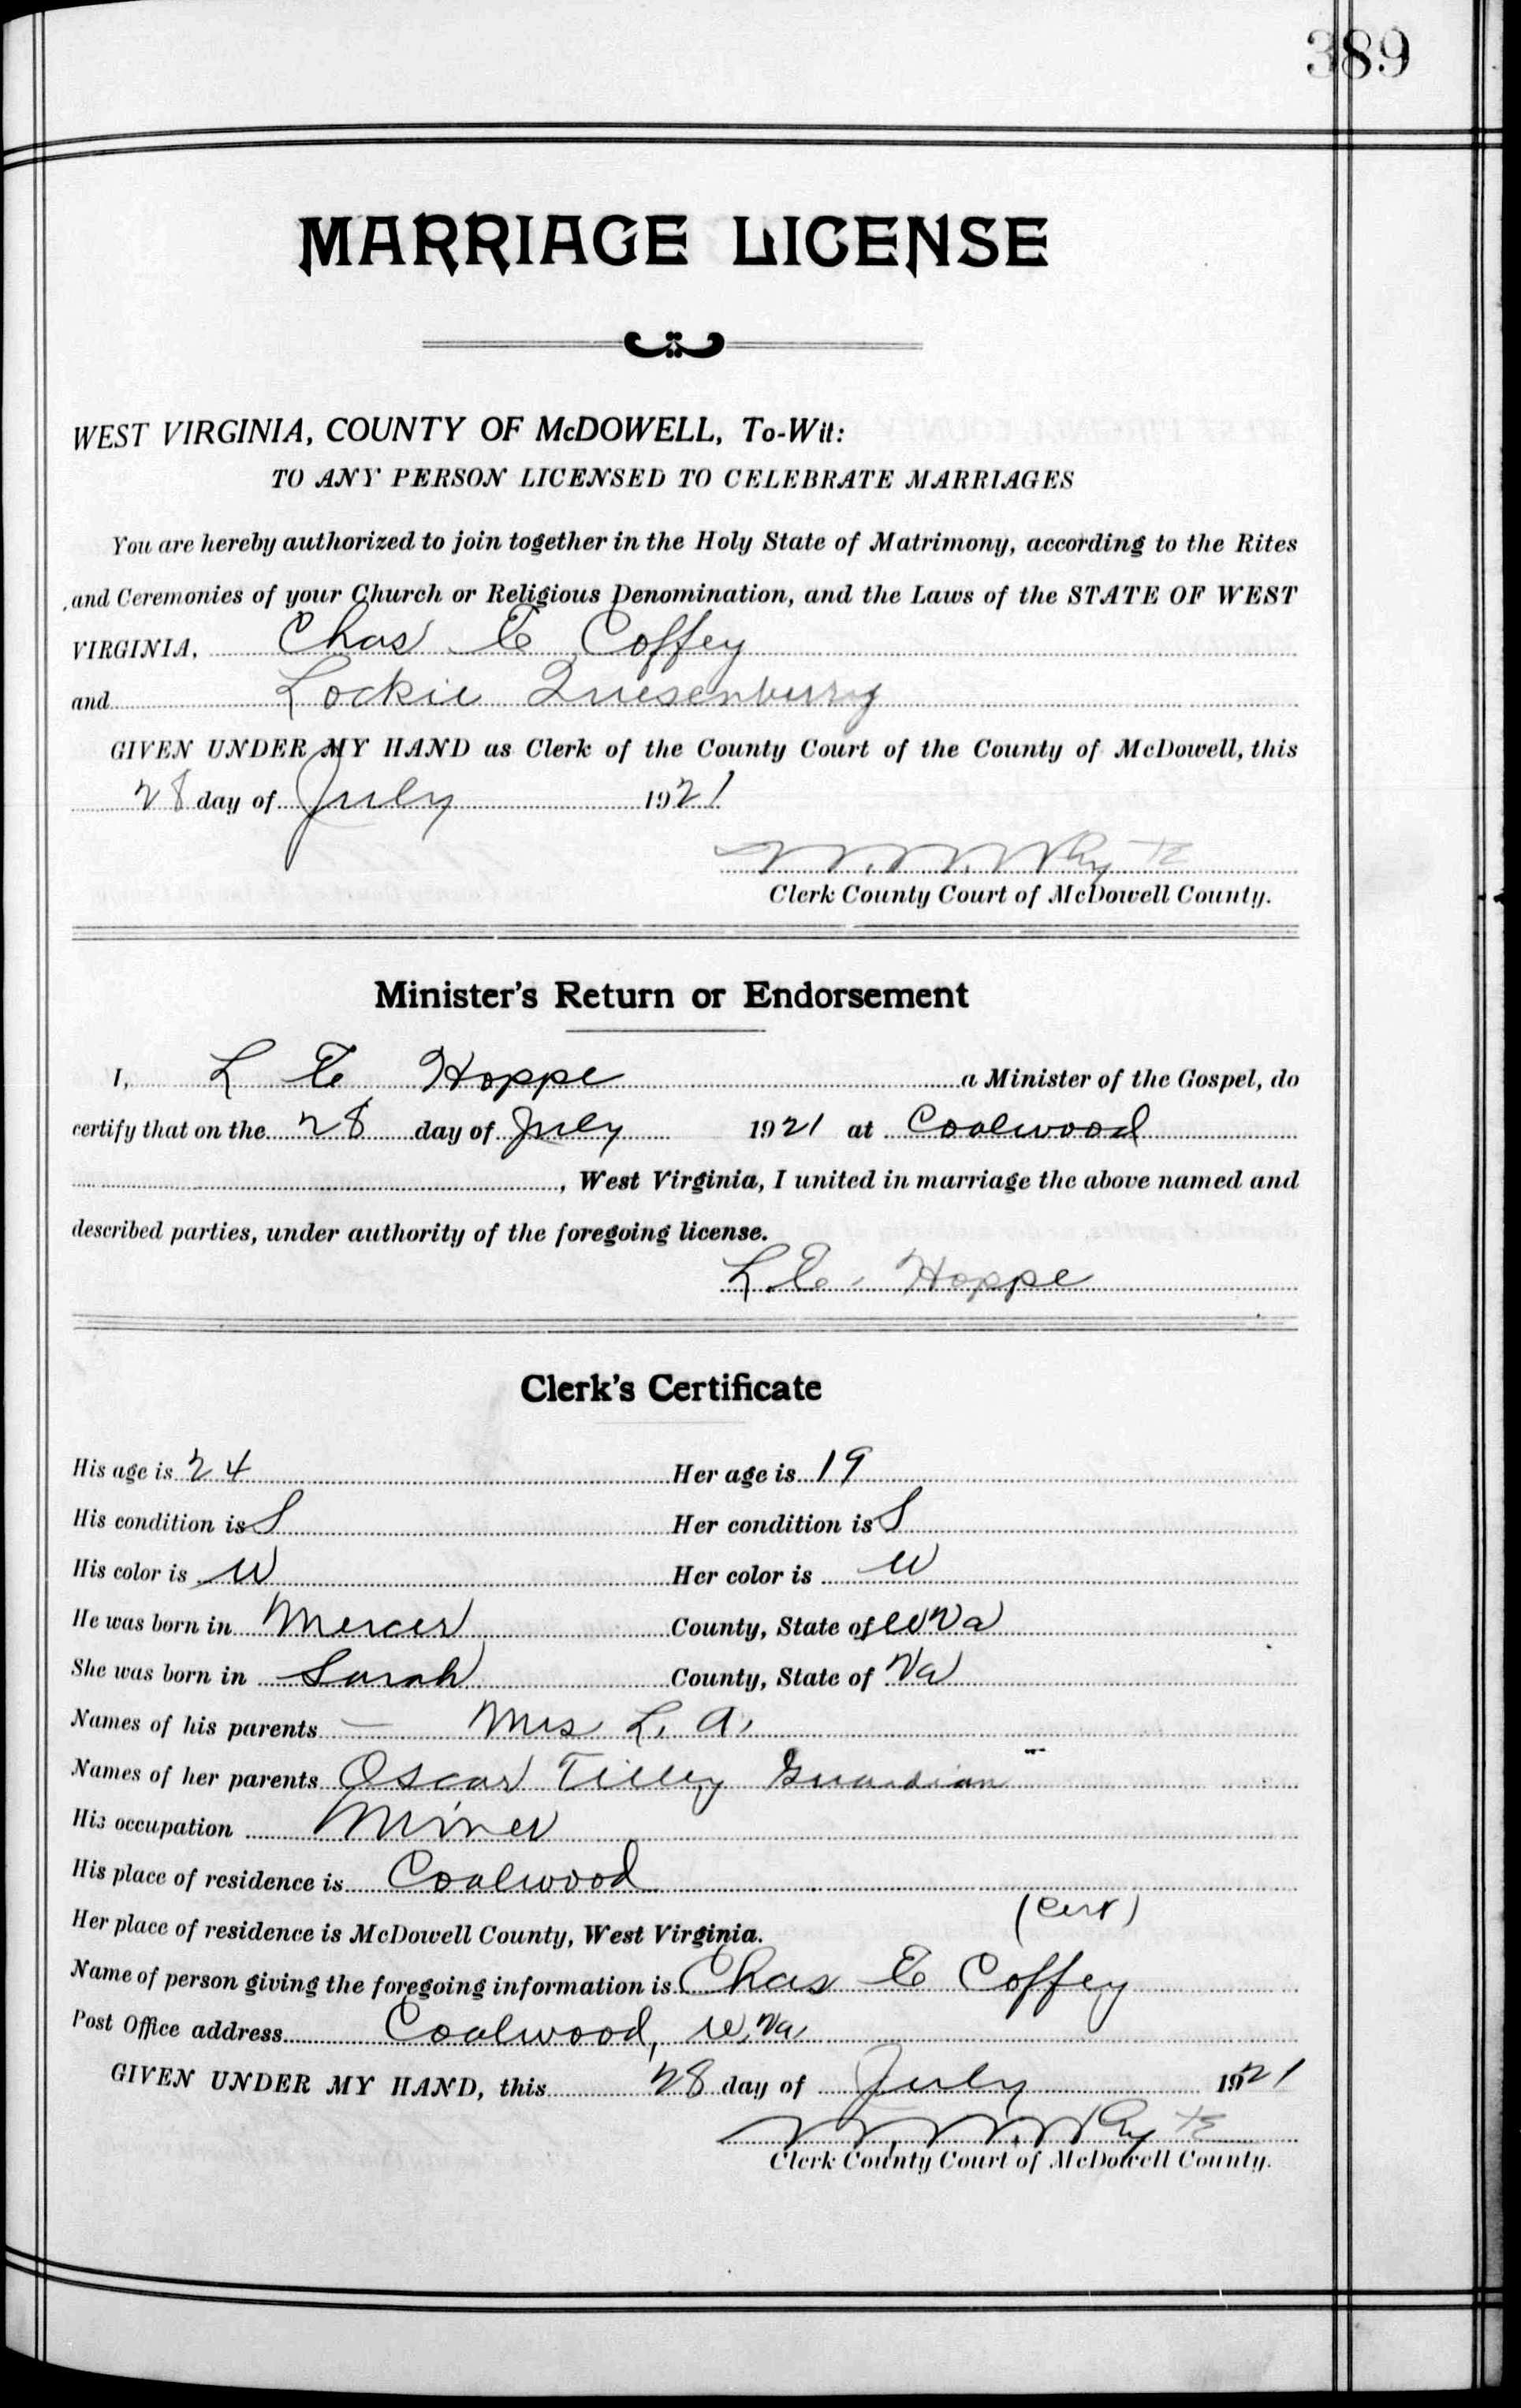 389
MARRIAGE LICENSE
WEST VIRGINIA, COUNTY OF McDOWELL, To-Wit:
TO ANY PERSON LICENSED TO CELEBRATE MARRIAGES
You are hereby authorized to join together in the Holy State of Matrimony, according to the Rites
and Ceremonies of your Church or Religious Denomination, and the Laws of the STATE OF WEST
VIRGINIA, Chas E Coffey
and Lockie Quesenburry
GIVEN UNDER MY HAND as Clerk of the County Court of the County of McDowell, this
28 day of July 1921
Clerk County Court of McDowell County.
Minister's Return or Endorsement
I, L E Hoppe a Minister of the Gospel, do
certify that on the 28 day of July 1921 at Coalwood
, West Virginia, I united in marriage the above named and
described parties, under authority of the foregoing license.
L.E. Hoppe
Clerk's Certificate
His age is 24 Her age is 19
His condition is S Her condition is S
His color is W Her color is W
He was born in Mercer County, State of W Va
She was born in Sarah County, State of Va
Names of his parents — Mrs L. A.
Names of her parents Oscar Tilley Guardian
His occupation Miner
His place of residence is Coalwood
Her place of residence is McDowell County, West Virginia. (Cert)
Name of person giving the foregoing information is Chas E Coffey
Post Office address Coalwood, W. Va.
GIVEN UNDER MY HAND, this 28 day of July 1921
Clerk County Court of McDowell County.